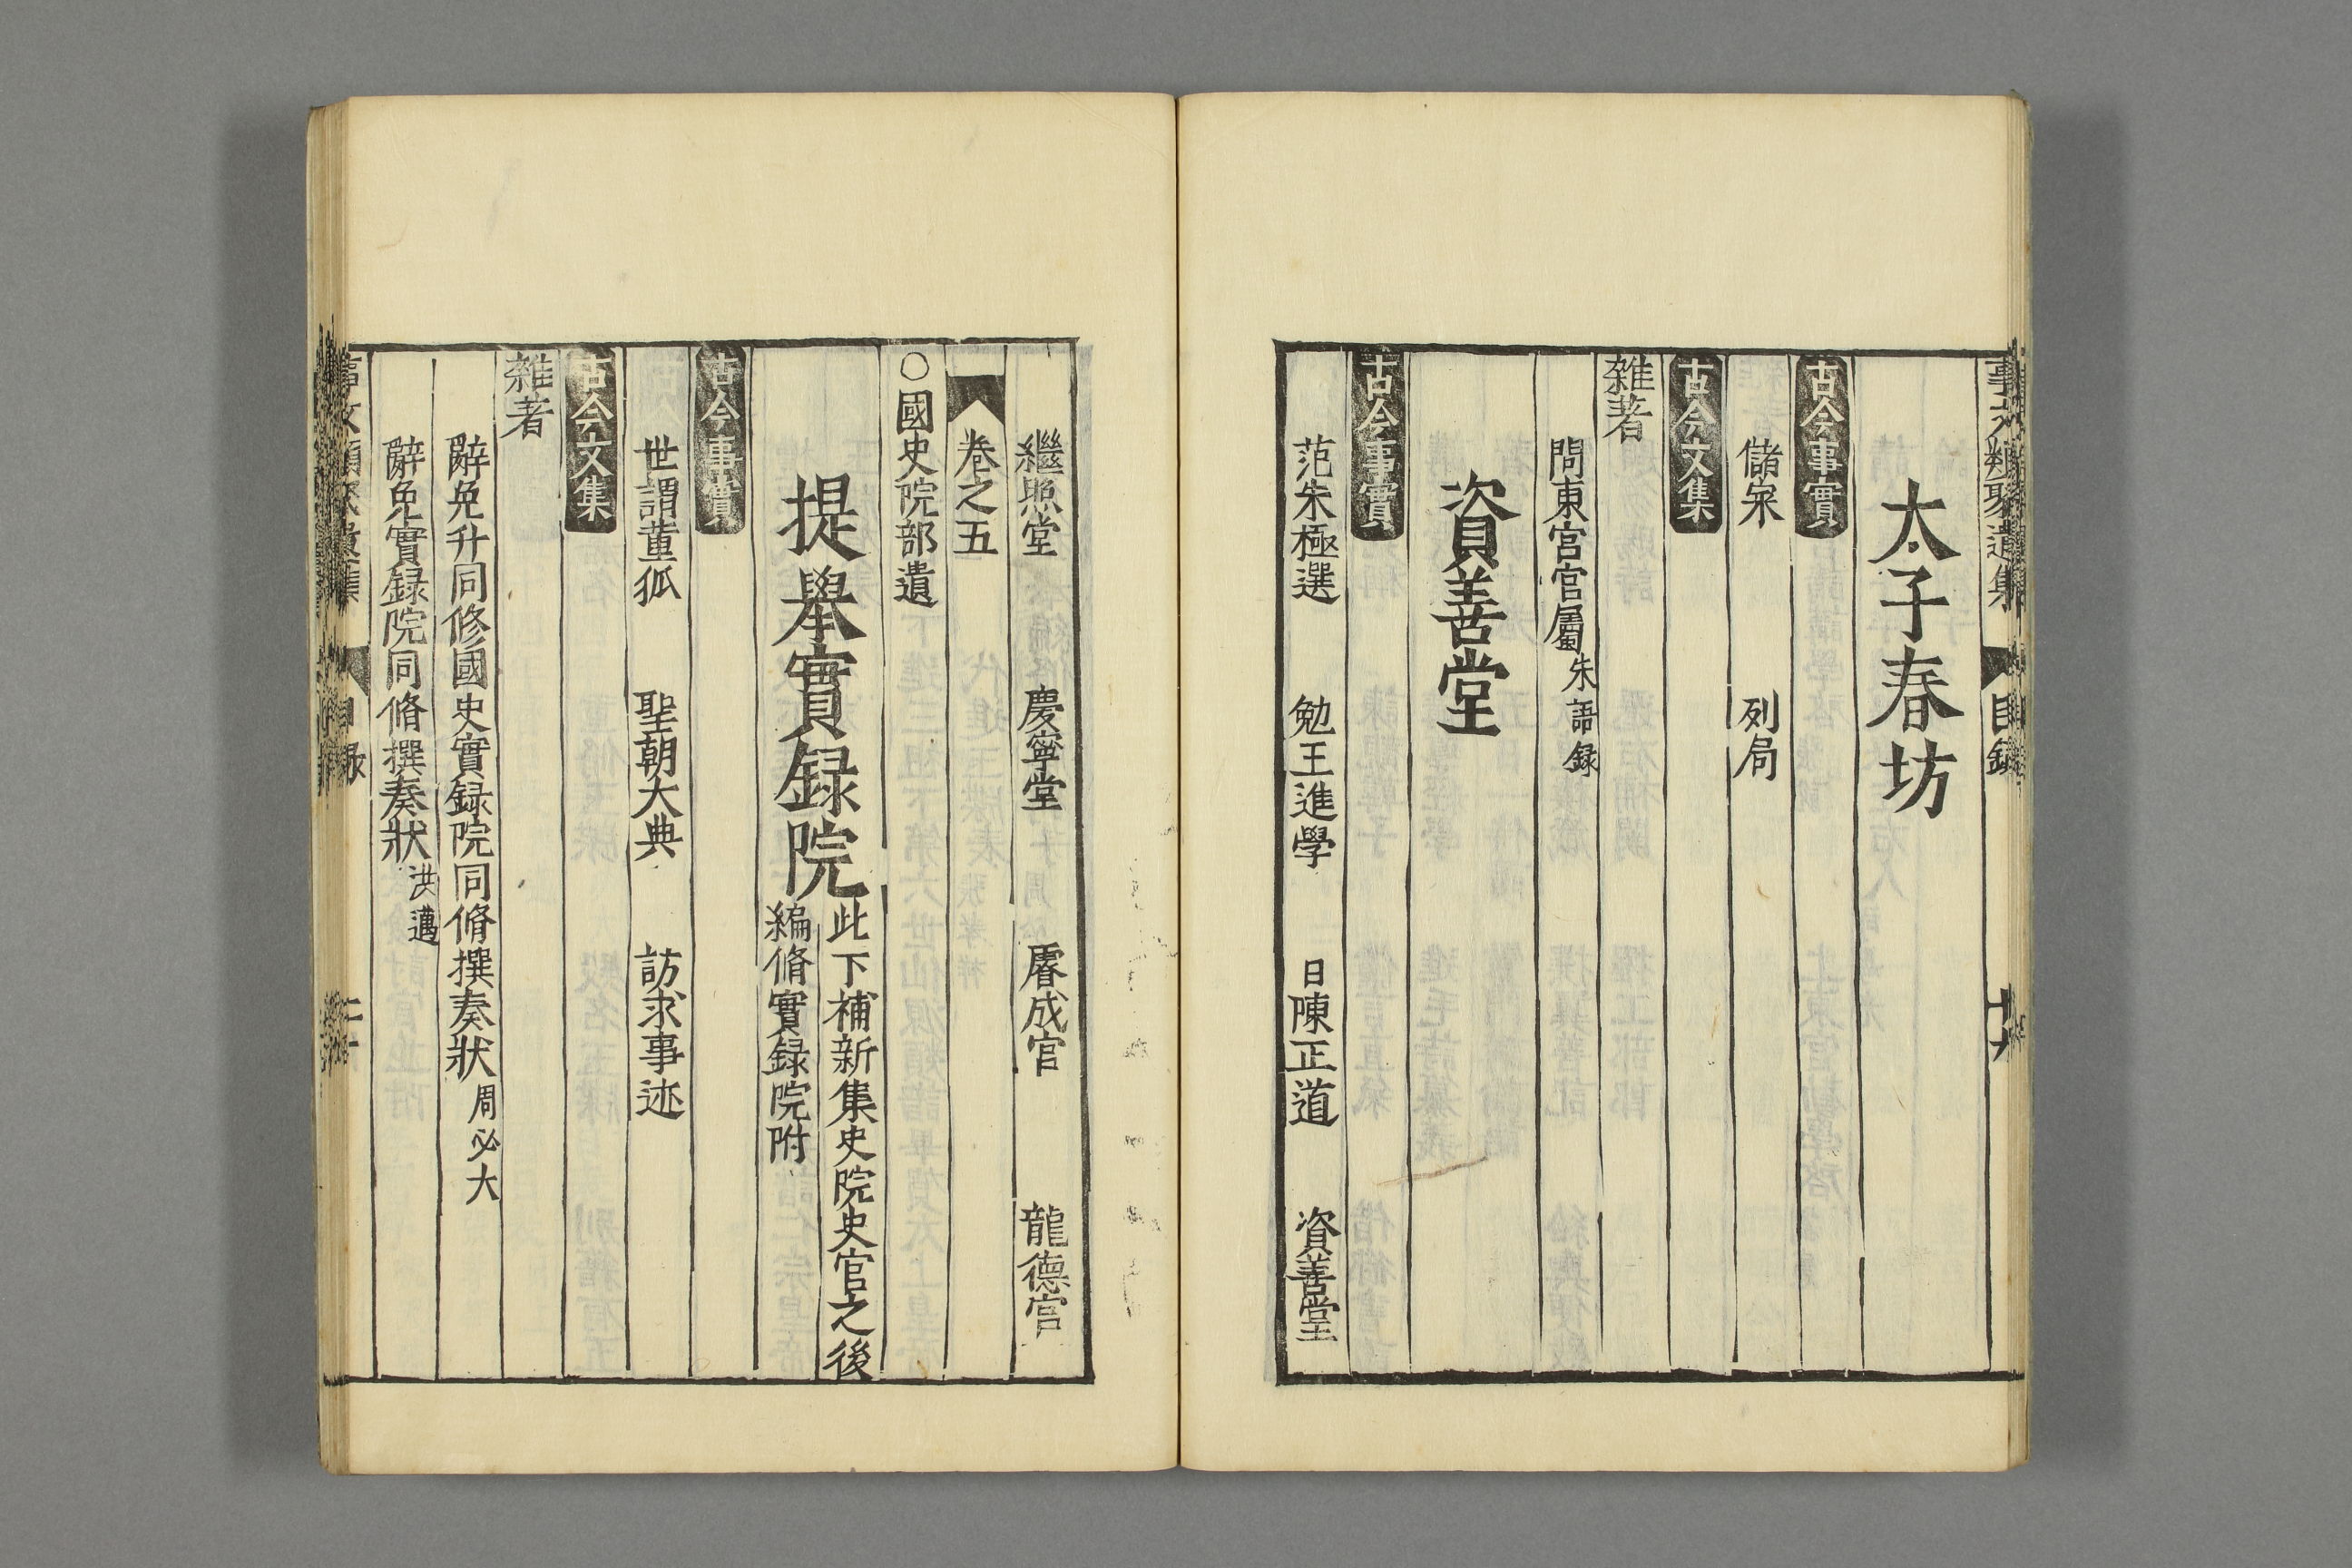 事文類聚遺集 目録 十六
太子春坊
古今事實
儲寀 列局
古今文集
雜著
問東宮宮屬朱語録
資善堂
古今事實
范朱極選 勉王進學 日陳正道 資善堂
繼照堂 慶寧堂 睿成宮 龍德宮
卷之五
○國史院部遺
提舉實録院此下補新集史院史官之後
編脩實録院附
古今事實
世謂董狐 聖朝大典 訪求事迹
古今文集
雜著
辭免升同修國史實録院同脩撰奏狀周必大
辭免實録院同脩撰奏狀洪邁
目録